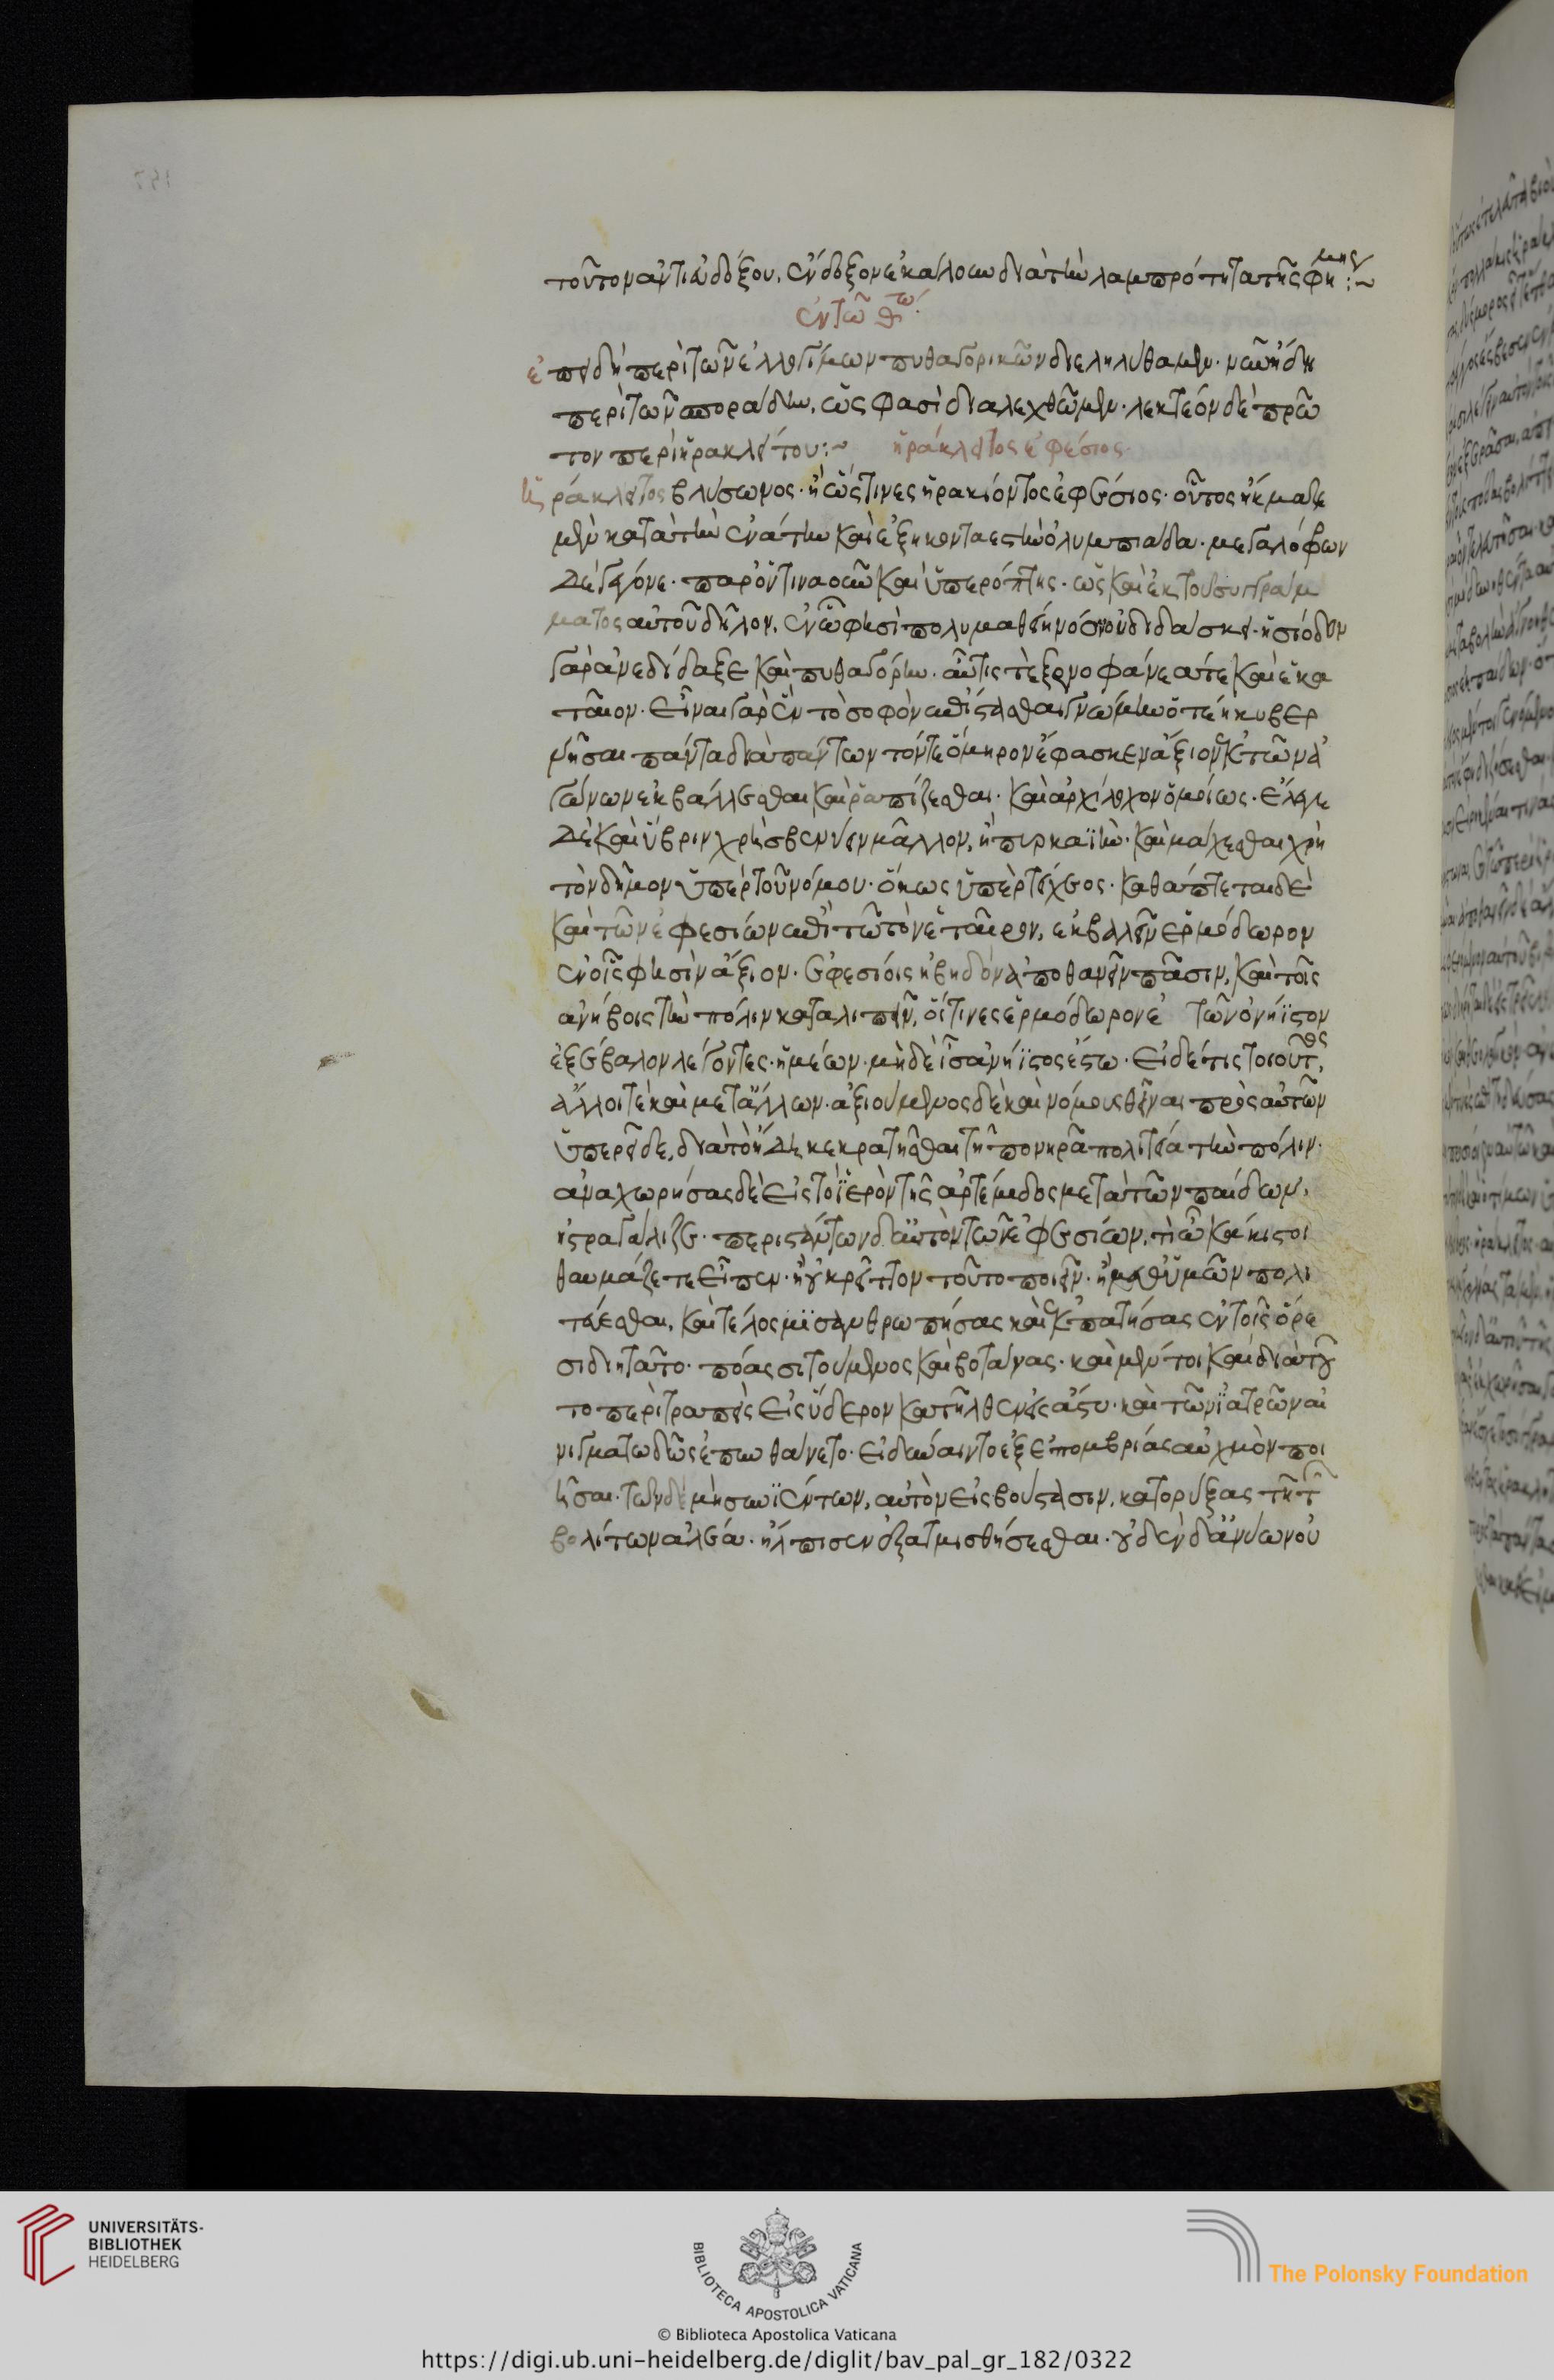 τοῦτον ἀντὶ εὐδόξου, ἔνδοξον ἐκάλουν διὰ τὴν λαμπρότητα τῆς φήμης :~
ἐν τῷ θ τῷ
ἐπειδὴ περὶ τῶν ἐλλογίμων πυθαγορικῶν διεληλύθαμεν· νῦν ἤδη
περὶ τῶν σποράδην, ὥς φασὶ διαλεχθῶμεν· λεκτέον δὲ πρῶ
τον περὶ ἡρακλείτου :~ ἡράκλειτος ἐφέσιος
ἡράκλειτος βλύσωνος· ἢ ὥς τινες ἡρακιόντος ἐφέσιος· οὗτος ἤκμαζε
μὲν κατὰ τὴν ἐνάτην καὶ ἑξηκοντα εστὴν ὀλυμπιάδα· μεγαλόφων
δὲ γέγονε· παρ' ὅντινα οὖν καὶ ὑπερόπτης· ὡς καὶ ἐκ τοῦ συγγράμ
ματος αὐτοῦ δῆλον, ἐν ὧ φησὶ πολυμαθείη νόον οὐ διδάσκει· ἡσίοδον
γὰρ ἂν ἐδίδαξε καὶ πυθαγόρην· αὖτις τὲ ξενοφάνεά τε καὶ ἑκα
ταῖον· εἶναι γὰρ ἓν τὸ σοφὸν ἐπίστασθαι γνώμην ὅτε ἡ κυβερ
νῆσαι πάντα διὰ πάντων τόν τε ὅμηρον ἔφασκεν ἄξιον ἐκ τῶν ἀ
γώνων ἐκβάλλεσθαι καὶ ῥαπίζεσθαι· καὶ ἀρχίλοχον ὁμοίως· ἔλεγε
δὲ καὶ ὕβριν χρὴ σβεννύειν μᾶλλον, ἢ πυρκαϊὴν· καὶ μάχεσθαι χρὴ
τὸν δῆμον ὑπὲρ τοῦ νόμου· ὅκως ὑπὲρ τείχεος· καθάπτεται δὲ
καὶ τῶν ἐφεσίων ἐπὶ τῶ τὸν ἑταῖρον, ἐκβαλεῖν ἑρμόδωρον
ἐν οἷς φησὶν ἄξιον· ἐφεσίοις ἡβηδὸν ἀποθανεῖν πᾶσιν, καὶ τοῖς
ἀνήβοις τὴν πόλιν καταλιπεῖν, οἵτινες ἑρμόδωρον ἑ τῶν ὀνήϊστον
ἐξέβαλον λέγοντες· ἡμέων· μὴ δὲ εἷς ἀνήϊστος ἔστω· εἰ δέ τις τοιοῦτος,
ἄλλοι τὲ καὶ μετ' ἄλλων· ἀξιούμενος δὲ καὶ νόμους θεῖναι πρὸς αὐτῶν
ὑπερεῖδε, διὰ τὸ ἤδη κεκρατῆσθαι τῇ πονηρᾷ πολιτείᾳ τὴν πόλιν·
ἀναχωρήσας δὲ εἰς τὸ ἱερὸν τῆς ἀρτέμιδος μετὰ τῶν παίδων,
ἠστραγάλιζε· περιστάντων δ' αὐτὸν τῶν ἐφεσίων, τὶ ὦ κάκιστοι
θαυμάζετε εἶπεν· ἢ οὐ κρεῖττον τοῦτο ποιεῖν· ἢ μεθ' ὑμῶν πολι
τεύεσθαι, καὶ τέλος μισανθρωπήσας καὶ ἐκπατήσας ἐν τοῖς ὄρε
σι διητᾶτο· πόας σιτούμενος καὶ βοτάνας· καὶ μέντοι καὶ διὰ τοῦ
το περιτραπεὶς εἰς ὕδερον κατῆλθεν εἰς ἄστυ· καὶ τῶν ἰατρῶν αἰ
νιγματωδῶς ἐπυνθάνετο· εἰ δύναιντο ἐξ ἐπομβρίας αὐχμὸν ποι
ῆσαι· τῶν δὲ μὴ συνιέντων, αὑτὸν εἰς βούστασιν, κατορύξας τῇ τ
βολίτων ἀλέᾳ· ἤλπισεν ἐξατμισθήσεσθαι· οὐδὲν δ' ἀνύων οὐ
UNIVERSITÄTS-
BIBLIOTHEK
HEIDELBERG
BIBLIOTECA APOSTOLICA VATICANA
The Polonsky Foundation
© Biblioteca Apostolica Vaticana
https://digi.ub.uni-heidelberg.de/diglit/bav_pal_gr_182/0322